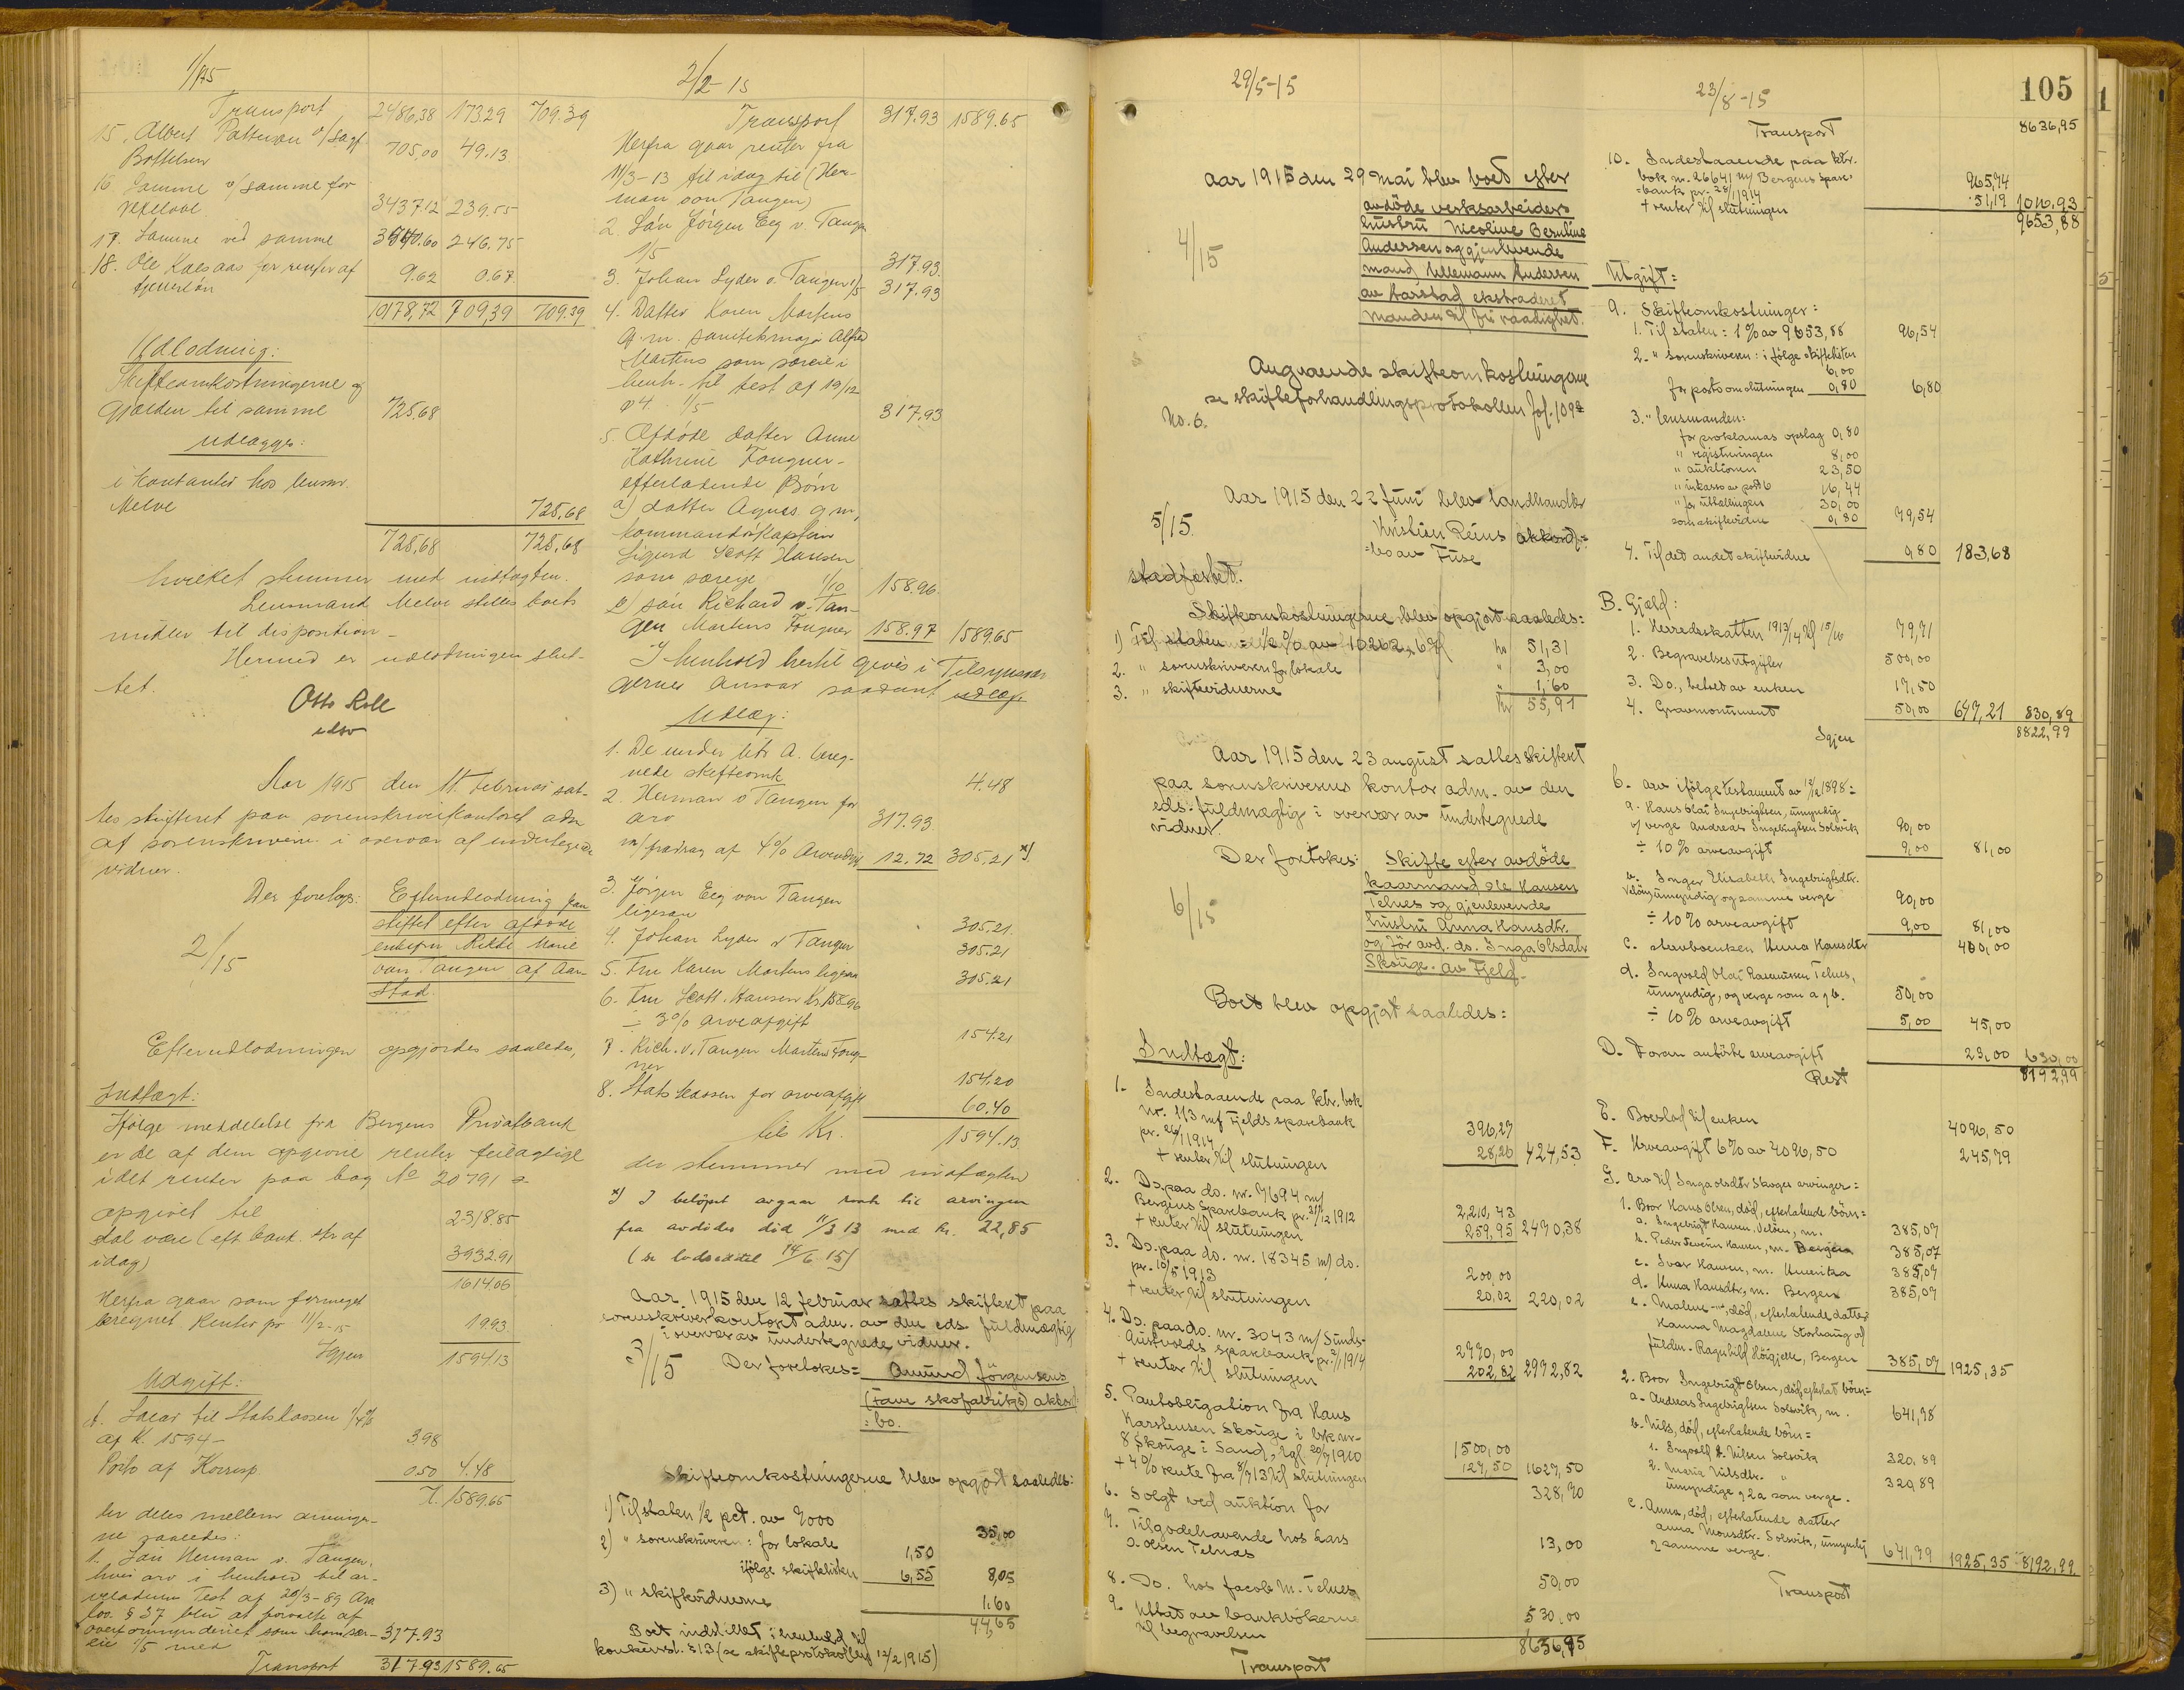 1/1-15
Transport 2486,38 173.29 709.39
15. Albert Patterson v/ Sagf.
705,00 49.13
16. Samme v/ samme for
Vexellaan 3437.12 239.55
17. Samme ved samme 246.75
18. Ole Kaesaas for renter af
9.62 0.67
10178,72 709,39 709.39
Udlodning:
Skifteomkostningerne og
gjælden til samme 728,68
udlægges:
i Kontanter hos lensm.
Melve 728,68
728,68 728,68
hvilket stemmer med indtægten.
Lensmand Melve stilles boets
midler til disposition -
Hermed er udlodningen slut-
tet.
Otto Roll
edsv
Aar 1915 den 11. februar sat-
tes skifteret paa sorenskriverkontoret adm
af sorenskriveren i overvær af undertegnede
vidner.
Der foretoges: Efterudlodning paa
skiftet efter afdøde
2/15 enkefru Rikke Marie
von Tangen af Aar-
stad.
Efterudlodningen opgjordes saaledes,
Indtægt:
Ifølge meddelelse fra Bergens Privatbank
er de af dem opgivne renter feilagtige
idet renter paa bog No 20791 er
opgivet til 2318.85
skal være (eft. bank. skr af
idag) 3932.91
1614.06
Herfra gaar som formeget
beregnet Renter pr 11/2-15 19.93
Igjen 1594.13
Udgift:
A. Salær til Statskassen 1/4 %
af K. 1594- 3.98
Porto af Korresp. 0.50 4.48
I. 1589.65
der deles mellem arvinge-
ne saaledes:
1. Søn Herman v. Tangen,
hvis arv i henhold til ar-
veladerens Test af 20/3-89 Arv
lov. § 37 blir at forvalte af
overformynderiet som hans sær-
eie 1/5 med 317.93
Transport 317.93 1589.65
2/2-15
Transport 317.93 1589.65
Herfra gaar renter fra
11/3-13 til idag til (Her-
man von Tangen)
2. Søn Jörgen Eeg v. Tangen
1/5 317.93
3. Johan Lyder v. Tangen 1/5 317.93
4. Datter Karen Martens
g.m. sanitetsmajor Alfred
Martens som særeie i
henh. til test af 19/12
04. 1/5 317.93
5. Afdöde datter Anne
Kathrine Fougner-
efterladende Børn
a) datter Agnes. g.m,
kommandörkaptein
Sigurd Scott Hansen
som særeie 1/10 158.96
b) søn Richard v. Tan-
gen Martens Fougner 158.97 1589.65
I henhold hertil gives i Tilsynsvær
gernes Ansvar saadant udlæg
Udlæg:
1. De under litr A. bereg-
nede skifteomk 4.48
2. Herman v Tangen for
arv 317.93
m/ fradrag af 4% Arveafgift 12.72 305.21 x)
3. Jörgen Eeg von Tangen
ligesaa 305.21
4. Johan Lyder v Tangen 305.21
5. Fru Karen Martens ligesaa 305.21
6. Fru Scott. Hansen Kr. 158.96
÷ 3% arveafgift 154.21
7. Rich. v. Tangen Martens Foug-
ner 154.20
8. Statskassen for arveafgift 60.40
tils Kr. 1594.13
der stemmer med indtægten
x) I belöpet avgaar rente til arvingen
fra avdödes död 11/3 13 med kr. 22,85
(se lodseddel 14/6 15)
Aar 1915 den 12 februar sattes skifteret paa
sorenskriverkontoret adm. av den eds. fuldmægtig
i overvær av undertegnede vidner.
3/15 Der foretokes: Amund Jörgensens
(Fane skofabriks) akkord-
=bo.
Skifteomkostningerne blev opgjort saaledes:
1) Til staten 1/2 pct. av 7000 35,00
2) " sorenskriveren: for lokale 1,50
ifölge skiftelisten 6,55 8,05
3) " skiftevidnerne 1,60
44,65
Boet indstillet i henhold til
konkursl. § 13 (se skifteprotokollen 12/2 1915)
29/5-15
Aar 1915 den 29 mai blev boet efter
avdöde verksarbeiders
hustru Nicoline Berntine
4/15 Andersen og gjenlevende
mand Ullemann Andersen
av Aarstad ekstraderet
manden til fri raadighet.
Angaaende skifteomkostningerne
se skifteforhandlingsprotokollen fol. 109a
No. 6.
Aar 1915 den 22 juni blev landhandler
5/15. Kristian Reins akkord-
=bo av Fuse
stadfæstet.
Skifteomkostningerne blev opgjort saaledes:
1) Til staten = 1/2 % av 10262,67 kr 51,31
2. " sorenskriveren for lokale " 3,00
3. " skiftevidnerne " 1,60
kr 55,91
Aar 1915 den 23 august sattes skifteret
paa sorenskriverens kontor adm. av den
eds. fuldmægtig i overvær av undertegnede
vidner.
Der foretokes: Skifte efter avdöde
kaarmand Ole Hansen
6/15 Telnes og gjenlevende
hustru Anna Hansdtr.
og för avd. do. Inga Olsdatr
Skoge. av Fjeld.
Boet blev opgjort saaledes:
Indtægt:
1. Indestaaende paa ktr. bok
nr. 113 m/ Fjelds sparebank
pr. 26/1 1914 396,27
+ renter til slutningen 28,26 424,53
2. Do. paa do. nr. 7694 m/
Bergens Sparebank pr. 31/12 1912 2,210,43
+ renter til slutningen 259,95 2470,38
3. Do. paa do. nr. 18345 m/ do.
pr. 10/5 1913 200,00
+ renter til slutningen 20,02 220,02
4. Do. paa do. nr. 3043 m/ Sunds-
Austevolds sparebank pr. 2/1 1914 2770,00
+ renter til slutningen 202,82 2972,82
5. Pantobligation fra Hans
Karstensen Skouge i brk nr.
8 Skouge i Sund, tgl. 20/7 1910 1500,00
+ 4% rente fra 8/7 13 til slutningen 127,50 1627,50
6. Solgt ved auktion for 328,70
7. Tilgodehavende hos Lars
O. Olsen Telnæs 13,00
8. Do. hos Jacob M. Telnes 50,00
9. Uttat av bankbökerne
til begravelsen 530,00
8636,95
Transport
23/8-15
105
Transport 8636,95
10. Indestaaende paa ktr.
bok nr. 26641 m/ Bergens spare-
=bank pr. 28/1 1914 965,74
+ renter til slutningen 51,19 1016,93
9653,88
Utgift:
A. Skifteomkostninger:
1. Til staten: 1% av 9653,88 96,54
2. " sorenskriveren: i fölge skiftelisten
6,00
for postomslutningen 0,80 6,80
3. " lensmanden:
for proklamas opslag 0,80
" registreringen 8,00
" auktionen 23,50
" inkasso av post 6 16,44
" for utlodningen 30,00
som skiftevidne 0,80 79,54
4. Til det andet skiftevidne 0,80 183,68
B. Gjæld:
1. Herredsskatten 1913/14 til 15/16 79,71
2. Begravelsesutgifter 500,00
3. Do., betalt av enken 17,50
4. Gravmonument 50,00 647,21 830,89
Igjen 8822,99
C. Arv ifölge testament av 1898:
a. Hans Olai Ingebrigtsen, umyndig
v/ verge Andreas Ingebrigtsen Solsvik 90,00
÷ 10% arveavgift 9,00 81,00
b. Inger Elisabeth Ingebrigtsdtr.
Velöen, umyndig og samme verge 90,00
÷ 10% arveavgift 9,00 81,00
c. sterbboenken Anna Hansdtr 400,00
d. Ingvald Olai Rasmussen Telnes,
umyndig, og verge som a og b. 50,00
÷ 10% arveavgift 5,00 45,00
D. Foran anförte arveavgift 23,00 630,00
Rest 8192,99
E. Boeslod til enken 4096,50
F. Arveavgift 6% av 4096,50 245,79
G. Arv til Inga Olsdtr Skoges arvinger:
1. Bror Hans Olsen, död, efterlatende börn:
a. Ingebrigt Hansen, Velöen, m. 385,07
b. Peder Severin Hansen, m. Bergen 385,07
c. Ivar Hansen, m. Amerika 385,07
d. Anna Hansdtr., m. Bergen 385,07
e. Malene —"—, död, efterlatende datter
Hanna Magdalene Storhaug v/
fuldm. Ragnhild Höigjelle, Bergen 385,07 1925,35
2. Bror Ingebrigt Olsen, död, efterlat börn:
a. Andreas Ingebrigtsen Solsvik, m. 641,78
b. Nils, död, efterlatende börn:
1. Ingvald A. Nilsen Solsvik 320,89
2. Maria Nilsdtr. " 320,89
umyndige, 2 a som verge.
c. Anna, död, efterlatende datter
Anna Monsdtr. Solsvik, umyndig
og samme verge. 641,79 1925,35 8192,99
Transport